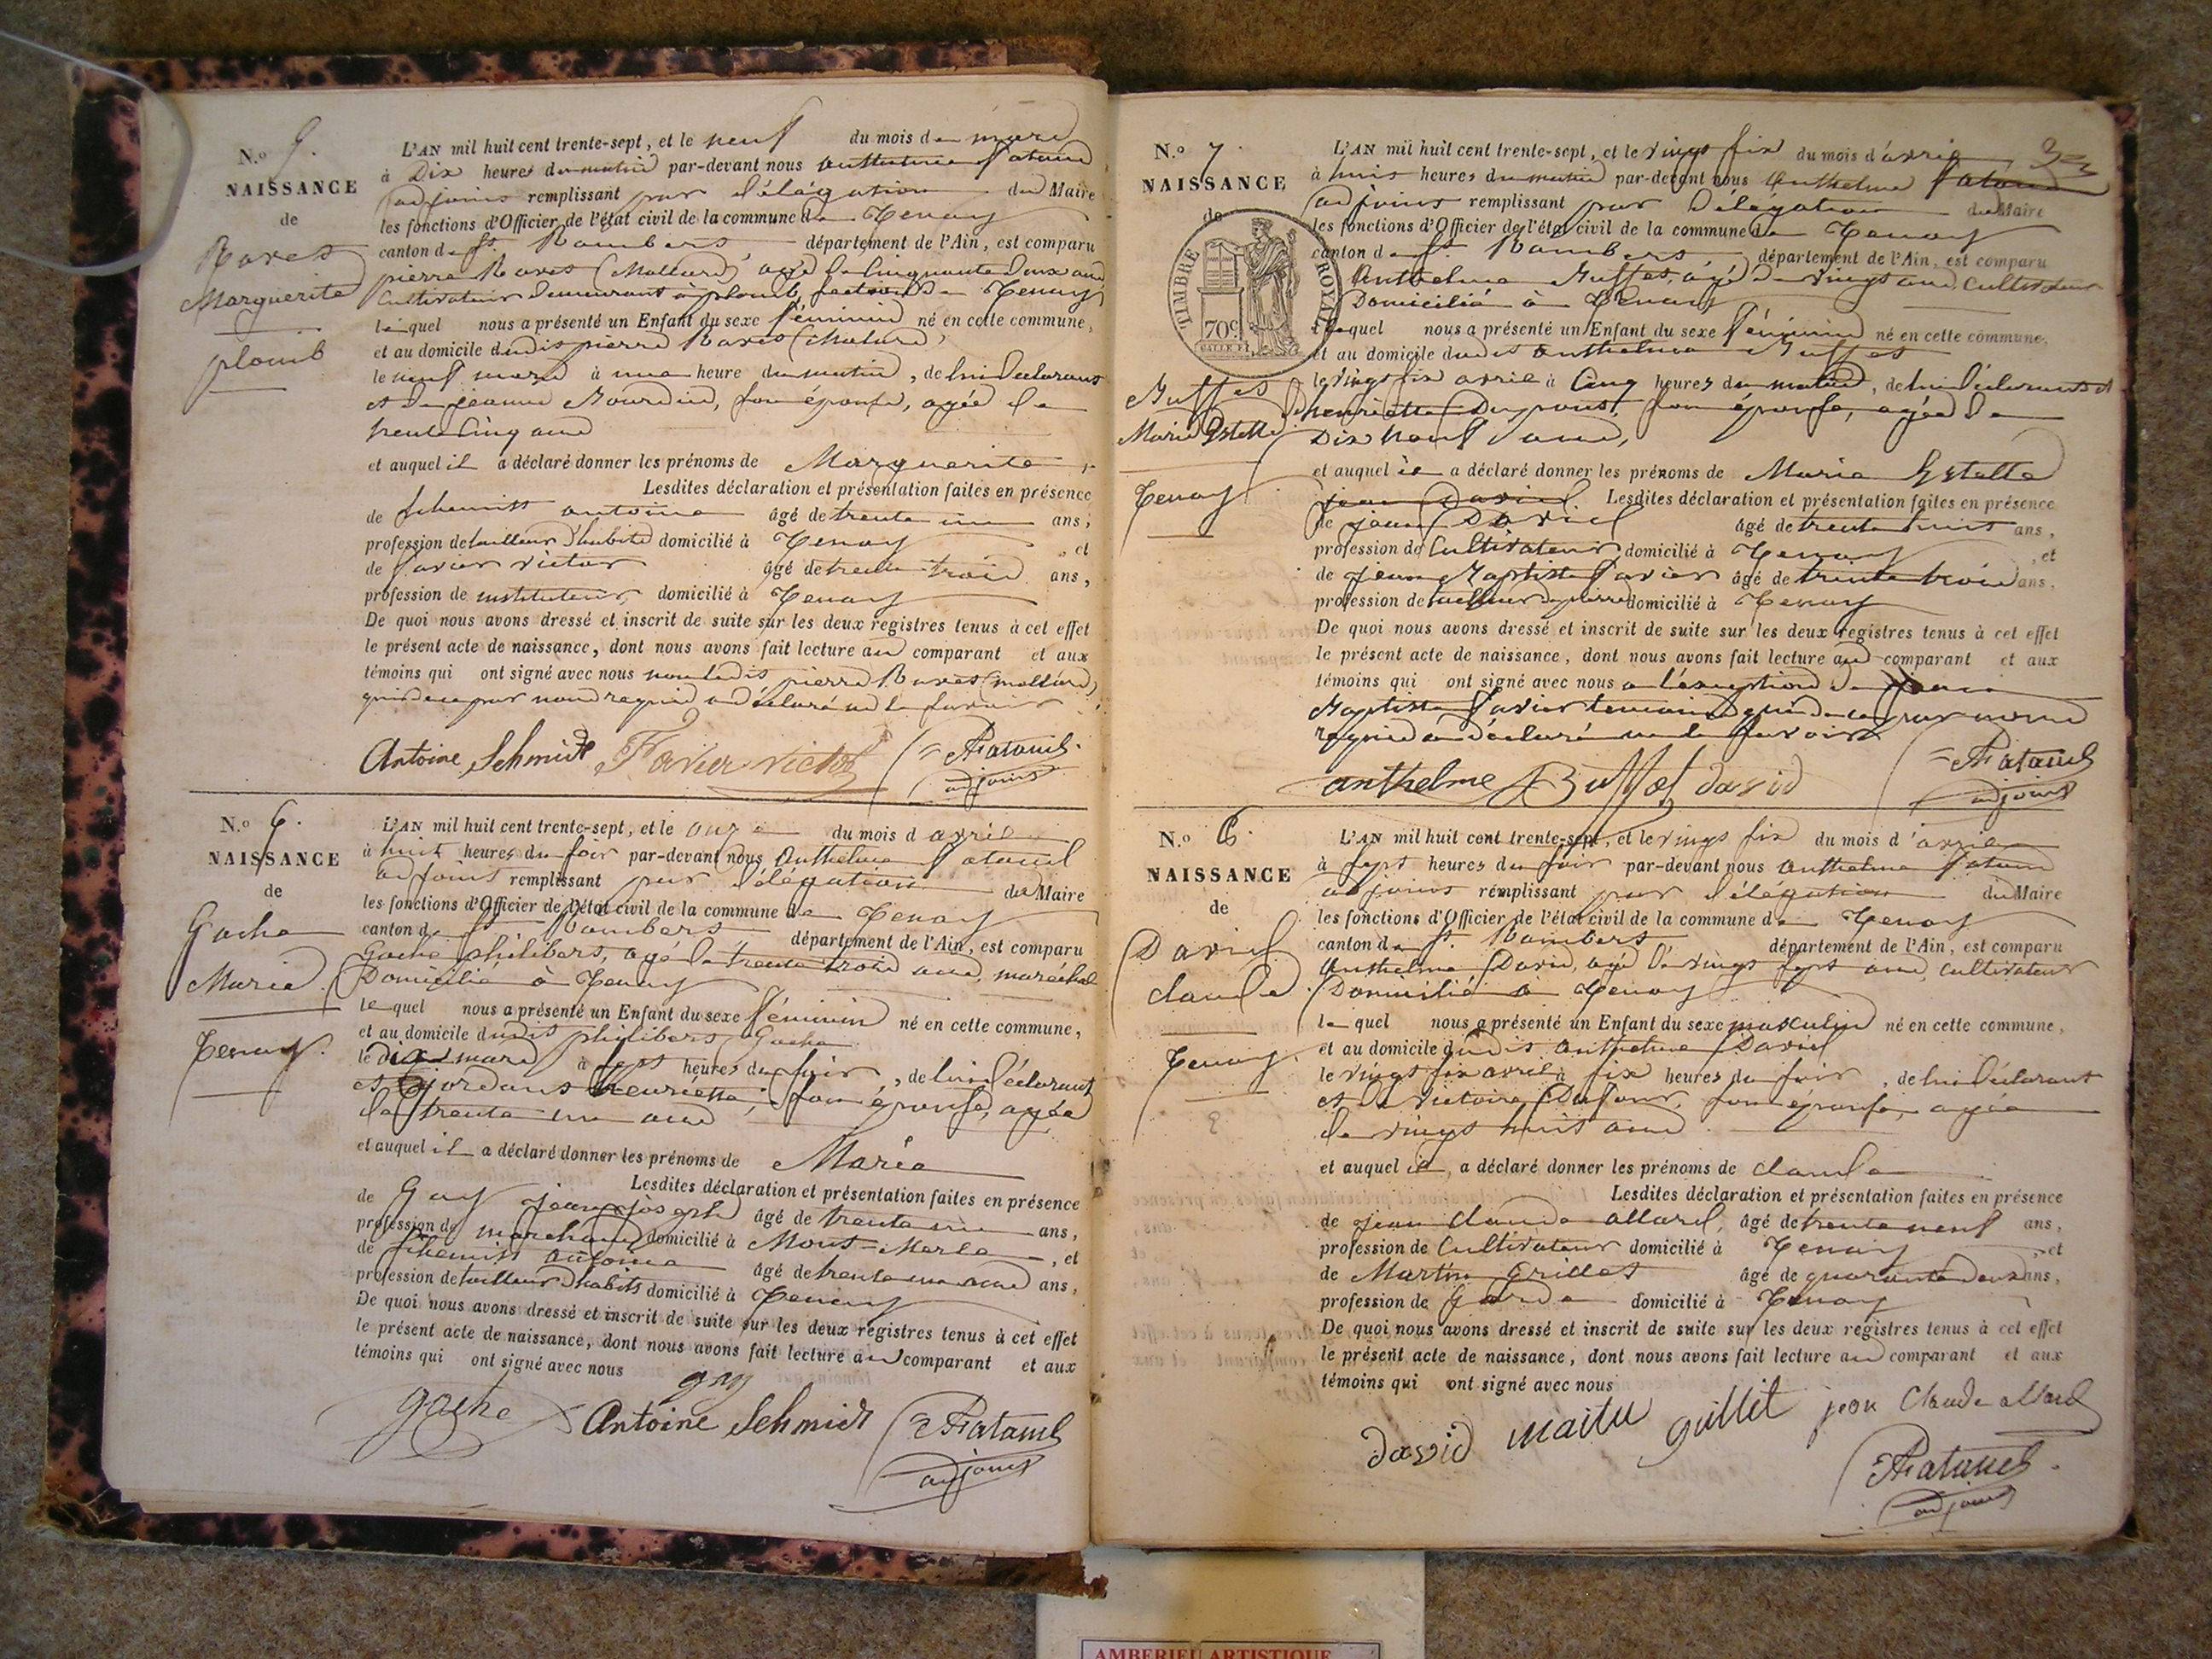 N.º 5.
NAISSANCE
de
Ravet
Marguerite
plomb
L'AN mil huit cent trente-sept, et le neuf du mois de mars
à Dix heures du matin par-devant nous anthelme
adjoint remplissant par délégation du Maire
les fonctions d'Officier de l'état civil de la commune de Tenay
canton de St. Rambert département de l'Ain, est comparu
pierre Ravet (Mollard) agé de cinquante deux ans
Cultivateur demeurant à plomb, section de Tenay
lequel nous a présenté un Enfant du sexe féminin né en cette commune,
et au domicile dudit pierre Ravet
le neuf mars à une heure du matin, de lui déclarant
et de jeanne Bourdin, son épouse, agée de
trente cinq ans
et auquel il a déclaré donner les prénoms de Marguerite
Lesdites déclaration et présentation faites en présence
de schemitt antoine âgé de trente un ans,
profession de tailleur d'habits domicilié à Tenay, et
de favier victor âgé de trente trois ans,
profession de instituteur, domicilié à Tenay
De quoi nous avons dressé et inscrit de suite sur les deux registres tenus à cet effet
le présent acte de naissance, dont nous avons fait lecture au comparant et aux
témoins qui ont signé avec nous non ledit pierre Ravet (mollard)
qui de ce par nous requis a déclaré ne le savoir
Antoine Schmidt Favier victor
adjoint
N.º 6.
NAISSANCE
de
Gache
Marie
Tenay.
L'AN mil huit cent trente-sept, et le onze du mois d avril
à huit heures du soir par-devant nous Anthelme
adjoint remplissant par délégation du Maire
les fonctions d'Officier de l'état civil de la commune de Tenay
canton de St Rambert département de l'Ain, est comparu
Gache philibert, agé de trente trois ans, maréchal
Domicilié à Tenay
lequel nous a présenté un Enfant du sexe féminin né en cette commune,
et au domicile dudit philibert Gache
le dix mars à sept heures du soir, de lui déclarant
et henriette, son épouse, agée
de trente un ans
et auquel il a déclaré donner les prénoms de Marie
Lesdites déclaration et présentation faites en présence
de Guy jean joseph âgé de trente un ans,
profession de marchand domicilié à Mont-Merle, et
de schemitt antoine âgé de trente un ans ans,
profession de tailleur d'habits domicilié à Tenay
De quoi nous avons dressé et inscrit de suite sur les deux registres tenus à cet effet
le présent acte de naissance, dont nous avons fait lecture au comparant et aux
témoins qui ont signé avec nous
guy
gache Antoine Schmidt
adjoint
N.º 7.
NAISSANCE
de
TIMBRE ROYAL
70c
Buffet
Marie Estelle
Tenay
L'AN mil huit cent trente-sept, et le vingt six du mois d'avril
à huit heures du matin par-devant nous Anthelme
adjoint remplissant par délégation du Maire
les fonctions d'Officier de l'état civil de la commune de Tenay
canton de St. Rambert département de l'Ain, est comparu
Anthelme Buffet, âgé de vingt ans, cultivateur
Domicilié à Tenay
lequel nous a présenté un Enfant du sexe féminin né en cette commune,
et au domicile dudit anthelme Buffet
le vingt six avril à Cinq heures du matin, de lui déclarant et
de henriette Dupont, son épouse, agée de
Dix neuf ans,
et auquel il a déclaré donner les prénoms de Marie Estelle
jean David Lesdites déclaration et présentation faites en présence
de jean David âgé de trente huit ans,
profession de Cultivateur domicilié à Tenay, et
de jean Baptiste Favier âgé de trente trois ans,
profession de tailleur de pierre domicilié à Tenay
De quoi nous avons dressé et inscrit de suite sur les deux registres tenus à cet effet
le présent acte de naissance, dont nous avons fait lecture au comparant et aux
témoins qui ont signé avec nous a l'exception de jean
Baptiste Favier temoin qui de ce par nous
requis a déclaré ne le savoir
anthelme Buffet david
adjoint
N.º 8
NAISSANCE
de
David
claude
Tenay.
L'AN mil huit cent trente-sept, et le vingt six du mois d'avril
à sept heures du soir par-devant nous anthelme
adjoint remplissant par délégation du Maire
les fonctions d'Officier de l'état civil de la commune de Tenay
canton de St. Rambert département de l'Ain, est comparu
Anthelme David, agé de vingt sept ans, cultivateur
Domicilié a Tenay
lequel nous a présenté un Enfant du sexe masculin né en cette commune,
et au domicile dudit anthelme David
le vingt six avril à six heures du soir, de lui déclarant
et de victoire Dufour, son épouse, agée
de vingt huit ans
et auquel il a déclaré donner les prénoms de claude
Lesdites déclaration et présentation faites en présence
de jean claude allard, âgé de trente neuf ans,
profession de Cultivateur domicilié à Tenay, et
de Martin Grillet âgé de quarante deux ans,
profession de Garde domicilié à Tenay
De quoi nous avons dressé et inscrit de suite sur les deux registres tenus à cet effet
le présent acte de naissance, dont nous avons fait lecture au comparant et aux
témoins qui ont signé avec nous
david jean Claude allard
adjoint
AMBERIEU ARTISTIQUE